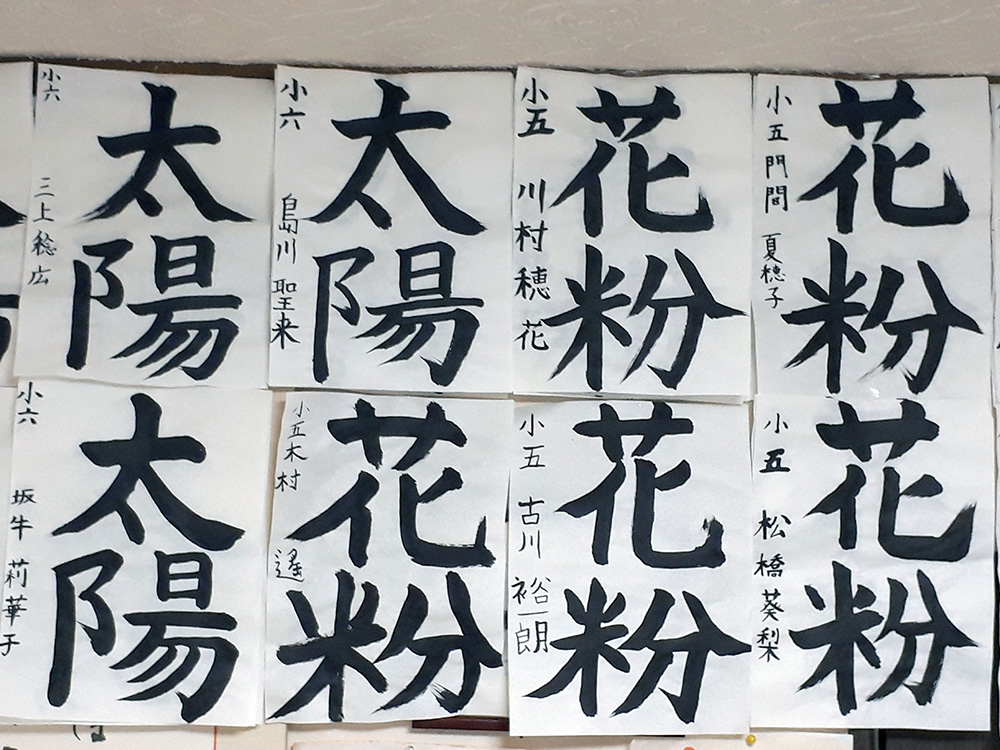 小六 三上稔広
太陽
小六 島川聖来
太陽
小五 川村穂花
花粉
小五 門間夏穂子
花粉
小六 坂牛莉華子
太陽
小五 木村遙
花粉
小五 古川裕一朗
花粉
小五 松橋葵梨
花粉
は